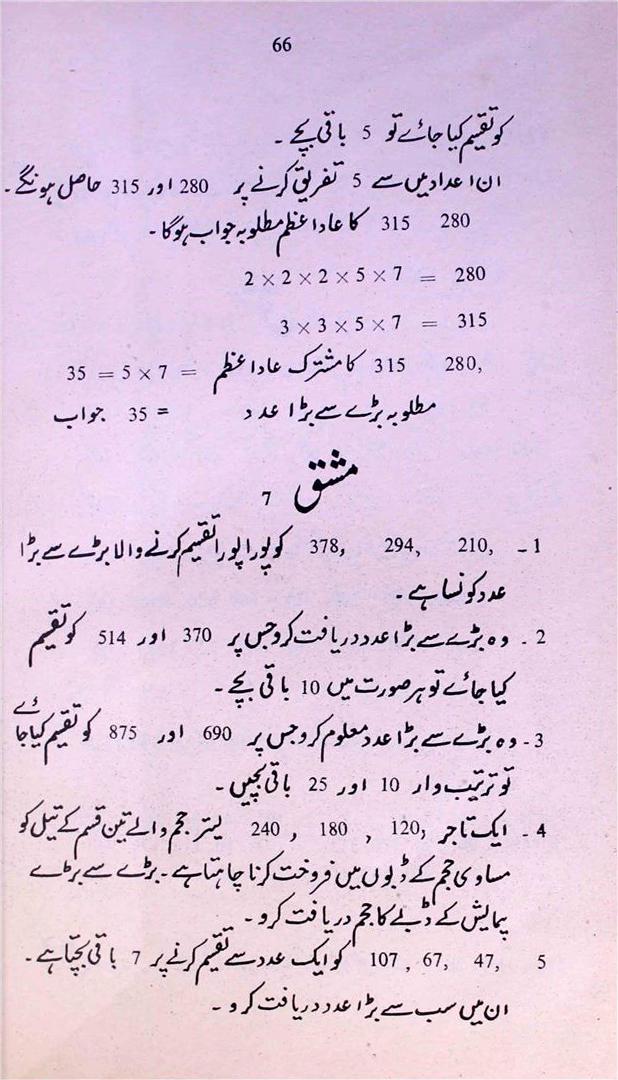 66
کو تقسیم کیا جائے تو 5 باقی بچے ۔
ان اعداد میں سے 5 تفریق کرنے پر 280 اور 315 حاصل ہونگے ۔
280 315 کا عاد اعظم مطلوبہ جواب ہوگا ۔
280 = 2 × 2 × 2 × 5 × 7
315 = 3 × 3 × 5 × 7
280, 315 کا مشترک عاد اعظم = 5 × 7 = 35
مطلوبہ بڑے سے بڑا عدد = 35 جواب
مشق 7
1 ۔ 210, 294, 378, کو پورا پورا تقسیم کرنے والا بڑے سے بڑا
عدد کونسا ہے ۔
2 ۔ وہ بڑے سے بڑا عدد دریافت کرو جس پر 370 اور 514 کو تقسیم
کیا جائے تو ہر صورت میں 10 باقی بچے ۔
3 ۔ وہ بڑے سے بڑا عدد معلوم کرو جس پر 690 اور 875 کو تقسیم کیا جائے
تو ترتیب وار 10 اور 25 باقی بچیں ۔
4 ۔ ایک تاجر 120, 180, 240 لیتر حجم والے تین قسم کے تیل کو
مساوی حجم کے ڈبوں میں فروخت کرنا چاہتا ہے ۔ بڑے سے بڑے
پیمایش کے ڈبے کا حجم دریافت کرو ۔
5 47, 67, 107 کو ایک عدد سے تقسیم کرنے پر 7 باقی بچتا ہے ۔
ان میں سب سے بڑا عدد دریافت کرو ۔